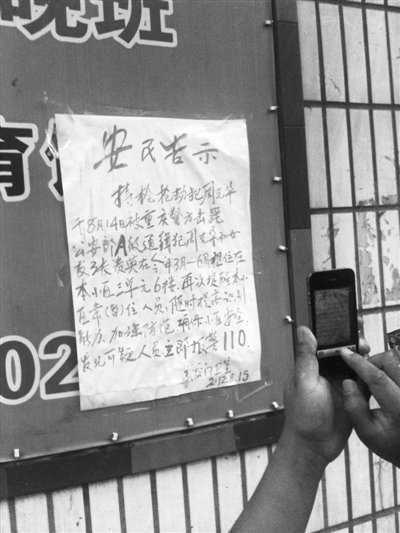 晚班
育
02
安民告示
持枪抢劫犯周克华
于8月14日被重庆警方击毙
公安部A级通缉犯周克华和女
友张贵英在今年3月—6月租住在
本小区三单元6楼.再次提醒本小
区常(暂)住人员,随时提高识别
能力.加强防范.确保小区安全.
发现可疑人员立即报警110.
门卫室
2012.8.15